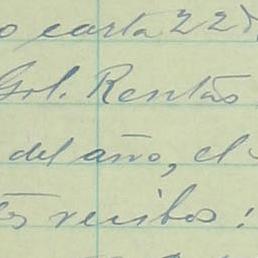 o carta 22
Grl. Rentas
del año, el
tes recibos: